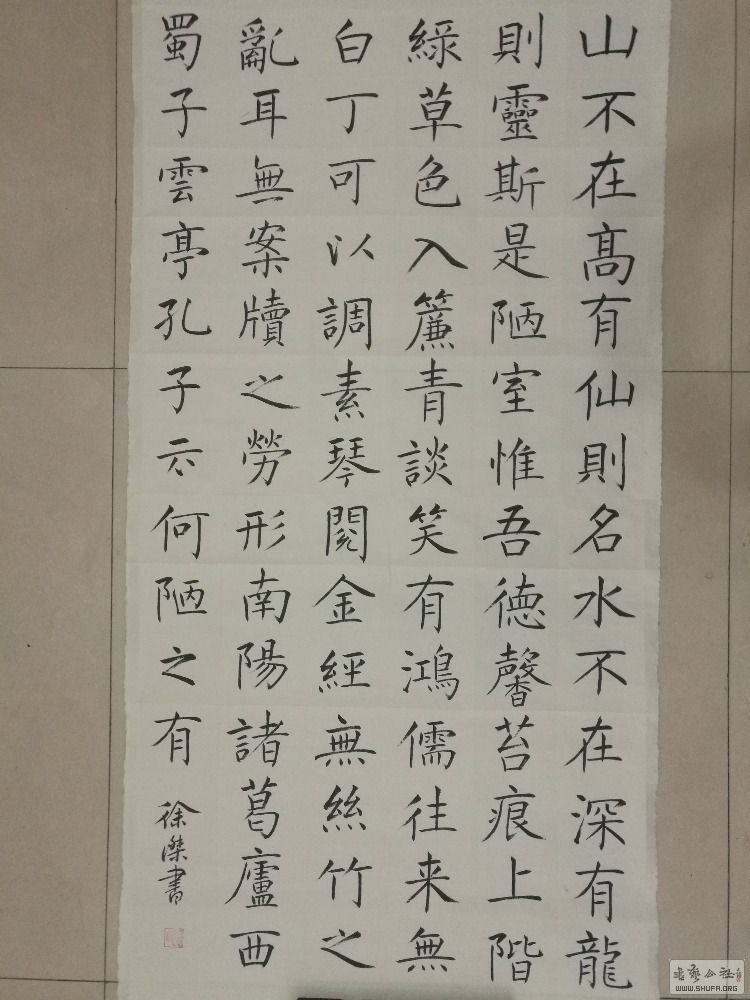 山不在高有仙則名水不在深有龍
則靈斯是陋室惟吾德馨苔痕上階
綠草色入簾青談笑有鴻儒往来無
白丁可以調素琴閱金經無絲竹之
亂耳無案牘之勞形南陽諸葛廬西
蜀子雲亭孔子云何陋之有
徐傑書
WWW.SHUFA.ORG